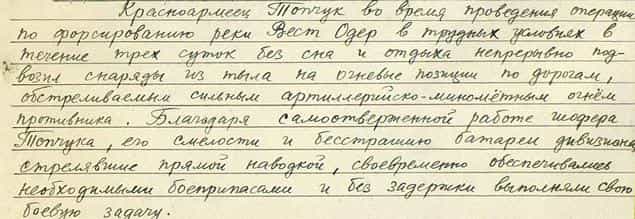 Красноармеец Топчук во время проведения операции
по форсированию реки Вест Одер в трудных условиях в
течение трех суток без сна и отдыха непрерывно под-
возил снаряды из тыла на огневые позиции по дорогам,
обстреливаемым сильным артиллерийско-миномётным огнём
противника. Благодаря самоотверженной работе шофера
Топчука, его смелости и бесстрашию батареи дивизиона,
стрелявшие прямой наводкой, своевременно обеспечивались
необходимыми боеприпасами и без задержки выполняли свою
боевую задачу.